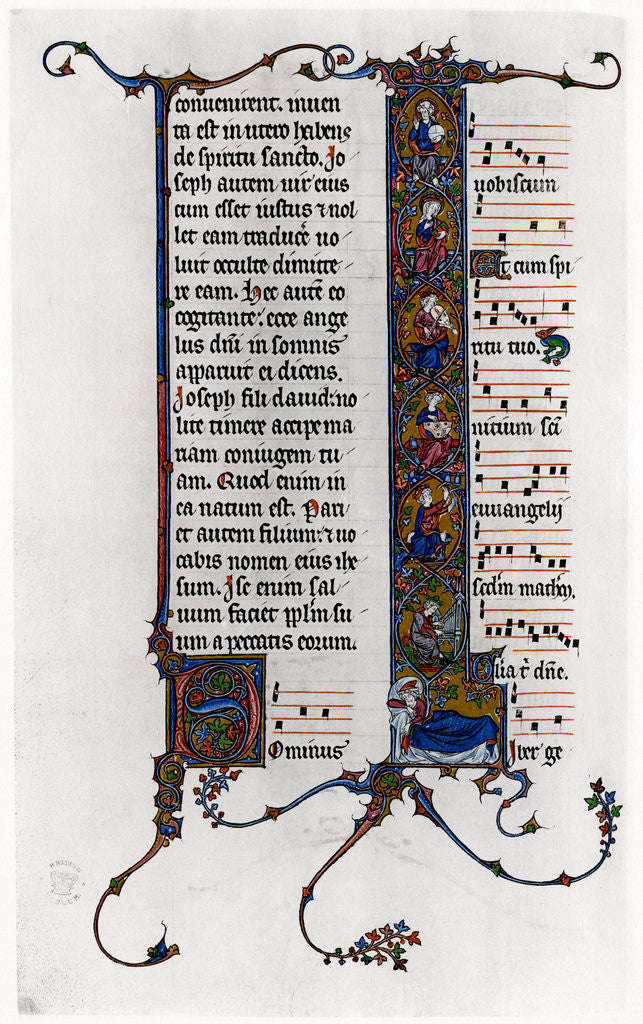 conuenirent. inuen
ta est in utero habens
de spiritu sancto. Jo
seph autem uir eius
cum esset iustus ⁊ nol
let eam traducẽ uo
luit occulte dimitte
re eam. Hec autẽ eo
cogitante: ecce ange
lus dñi in somnis
apparuit ei dicens.
Joseph fili dauid: no
lite timere accipe ma
riam coniugem tu
am. Quod enim in
ea natum est. Pari
et autem filium: ⁊ uo
cabis nomen eius ihe
sum. Ipse enim sal
uum faciet pplm̃ su
um a peccatis eorum.
Dominus
uobiscum
Et cum spi
ritu tuo.
nitium sc̃i
euuangelij
scdm̃ mathm̃.
Glia t̃ dñe.
Liber ge